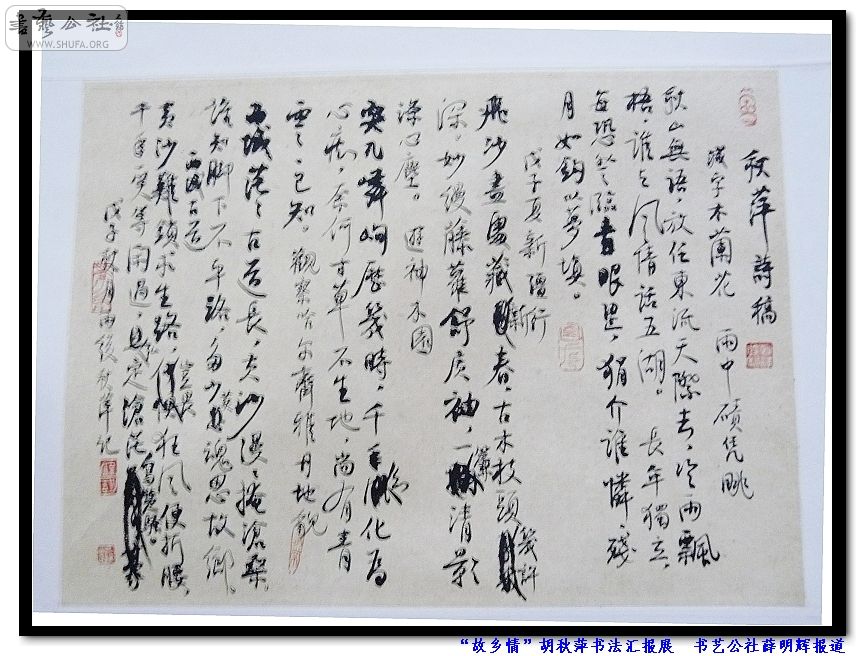 書藝公社
WWW.SHUFA.ORG
秋萍詩稿
減字木蘭花 雨中磧凭眺
秋山無語，放任東流天際去，冷雨飄
梧，誰与风情話五湖。長年獨立，
每恐登臨青眼思，狷介誰憐，殘
月如鈎照夢塡。
戊子夏新疆行
飛沙盡處藏新春，古木枝頭幾許
深。妙縵藤蘿舒广袖，一瀾清影
滌心塵。游神木園
突兀嶙峋歷幾時，千年演化為
心痴，奈何寸草不生地，尚有青
雲已知。觀察哈尔齊雅丹地貌
西域茫茫古道長，黄沙漫漫掩滄桑，
誰知脚下不平路，多少英魂思故鄉。
西域古道
黄沙難鎖求生路，豈畏狂风便折腰，
千年笑等闲過，
戊子秋月雨後秋萍記
“故乡情”胡秋萍书法汇报展 书艺公社薛明辉报道